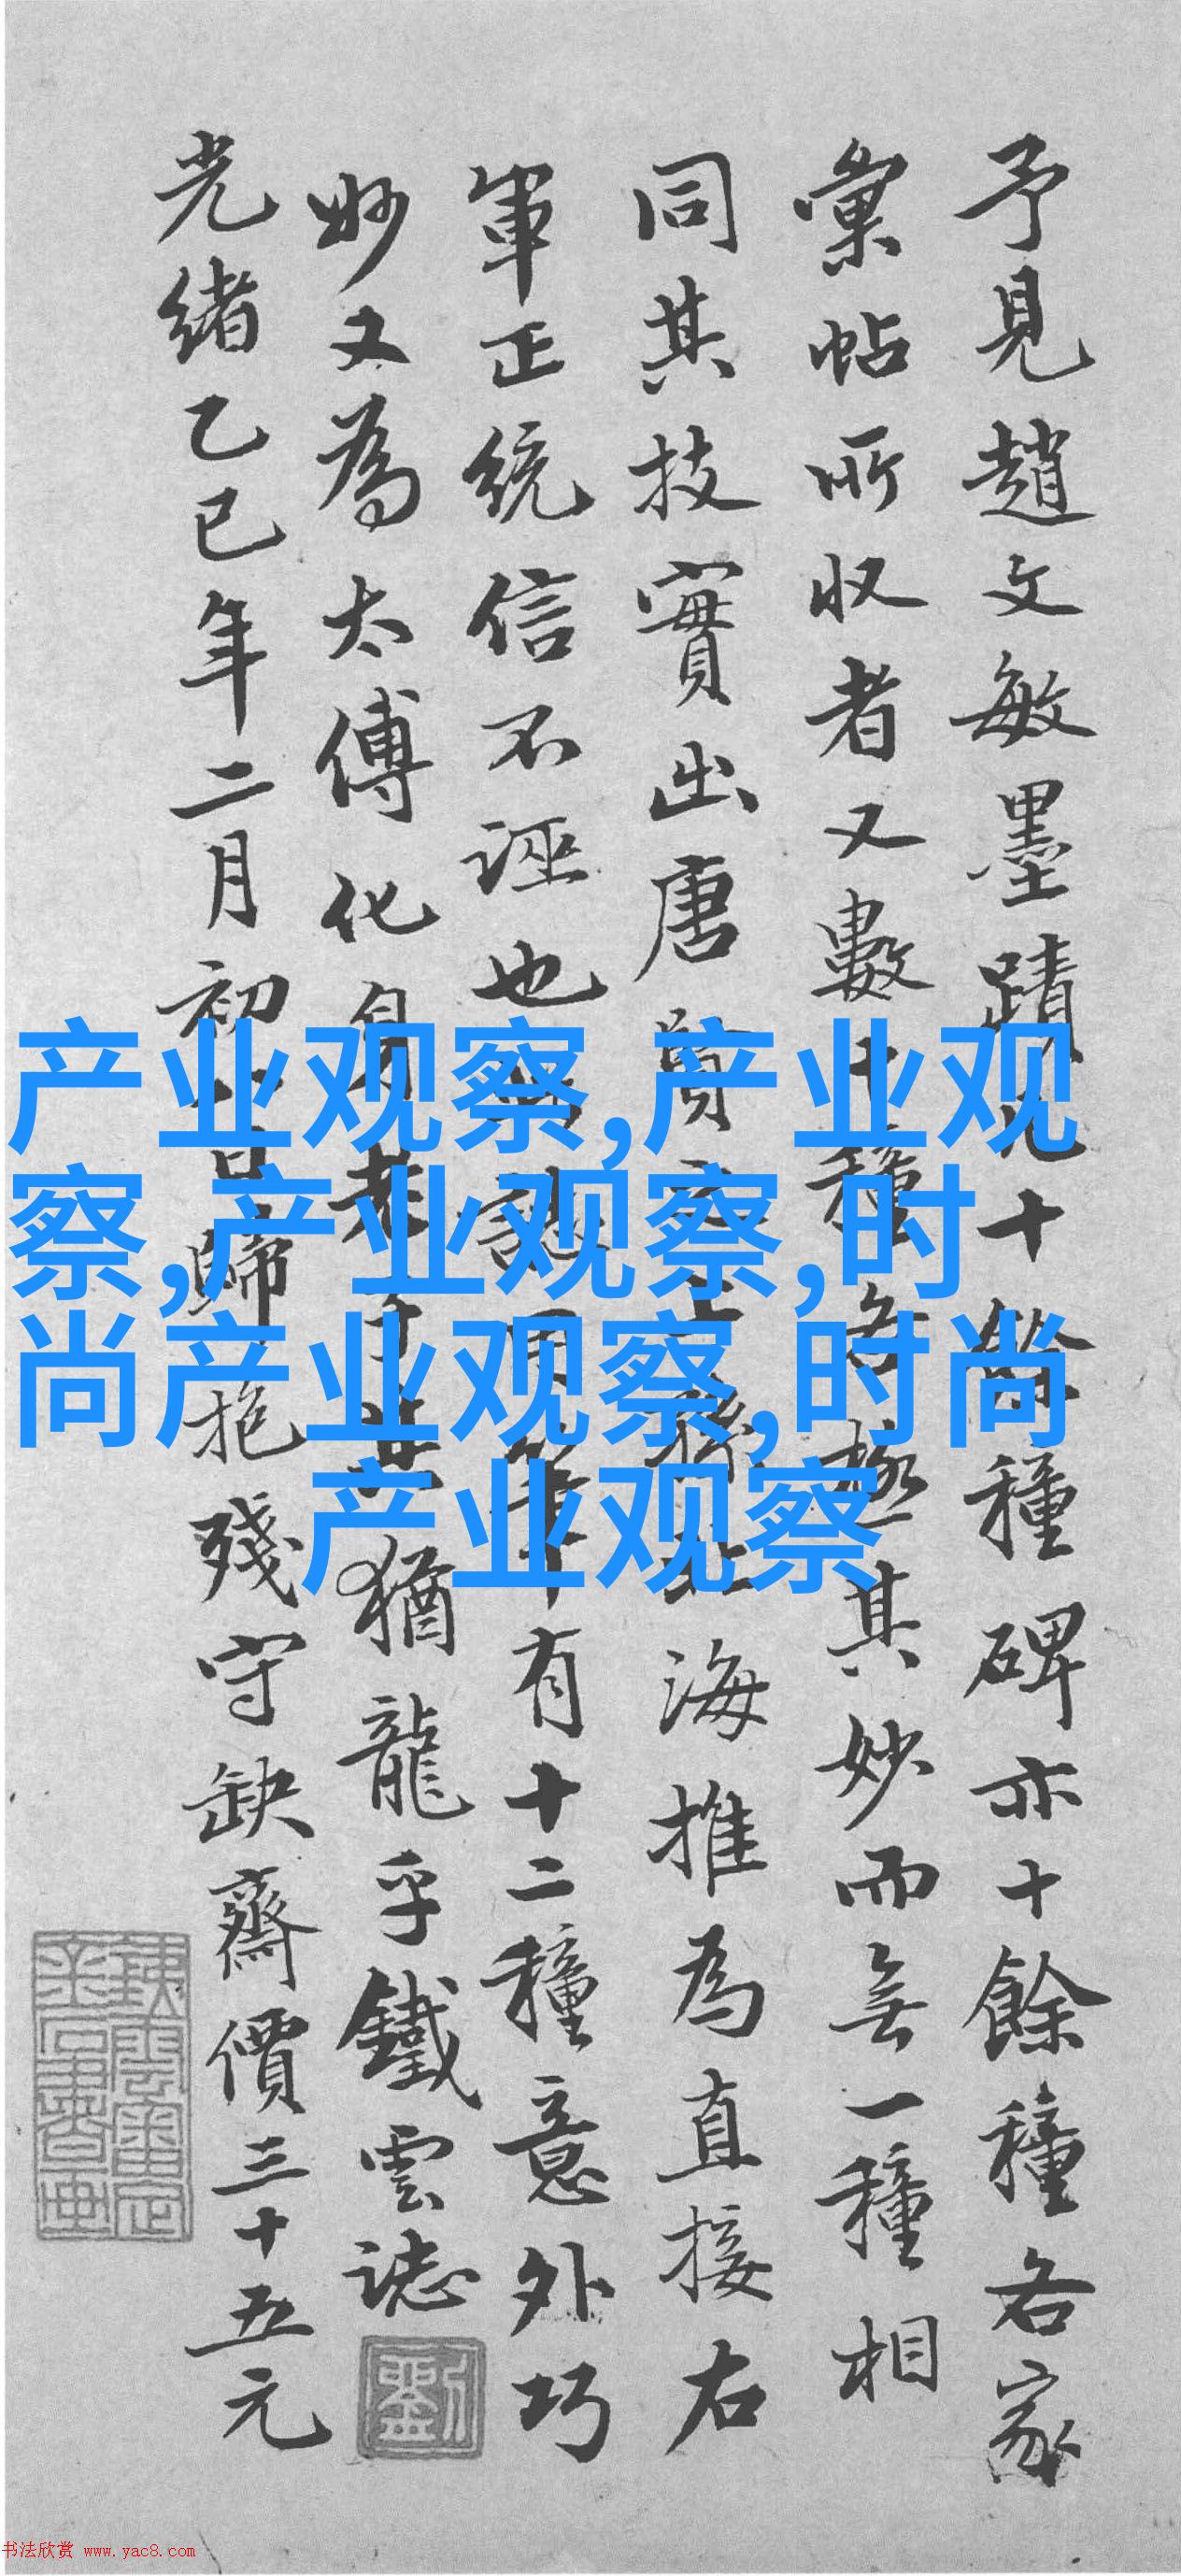 予見趙文敏墨蹟九十餘種碑亦十餘種各家
彙帖所收者又數十種各極其妙而無一種相
同其技實出唐賢之上孫北海推為直接右
軍正統信不誣也用筆有十二種意外巧
妙又為太傅化身老子其猶龍乎鐵雲誌
光緒乙巳年二月初日歸抱殘守缺齋價三十五元
劉
產业观察,产业观
察,产业观察,时
尚产业观察,时尚
产业观察
书法欣赏 www.yac8.com